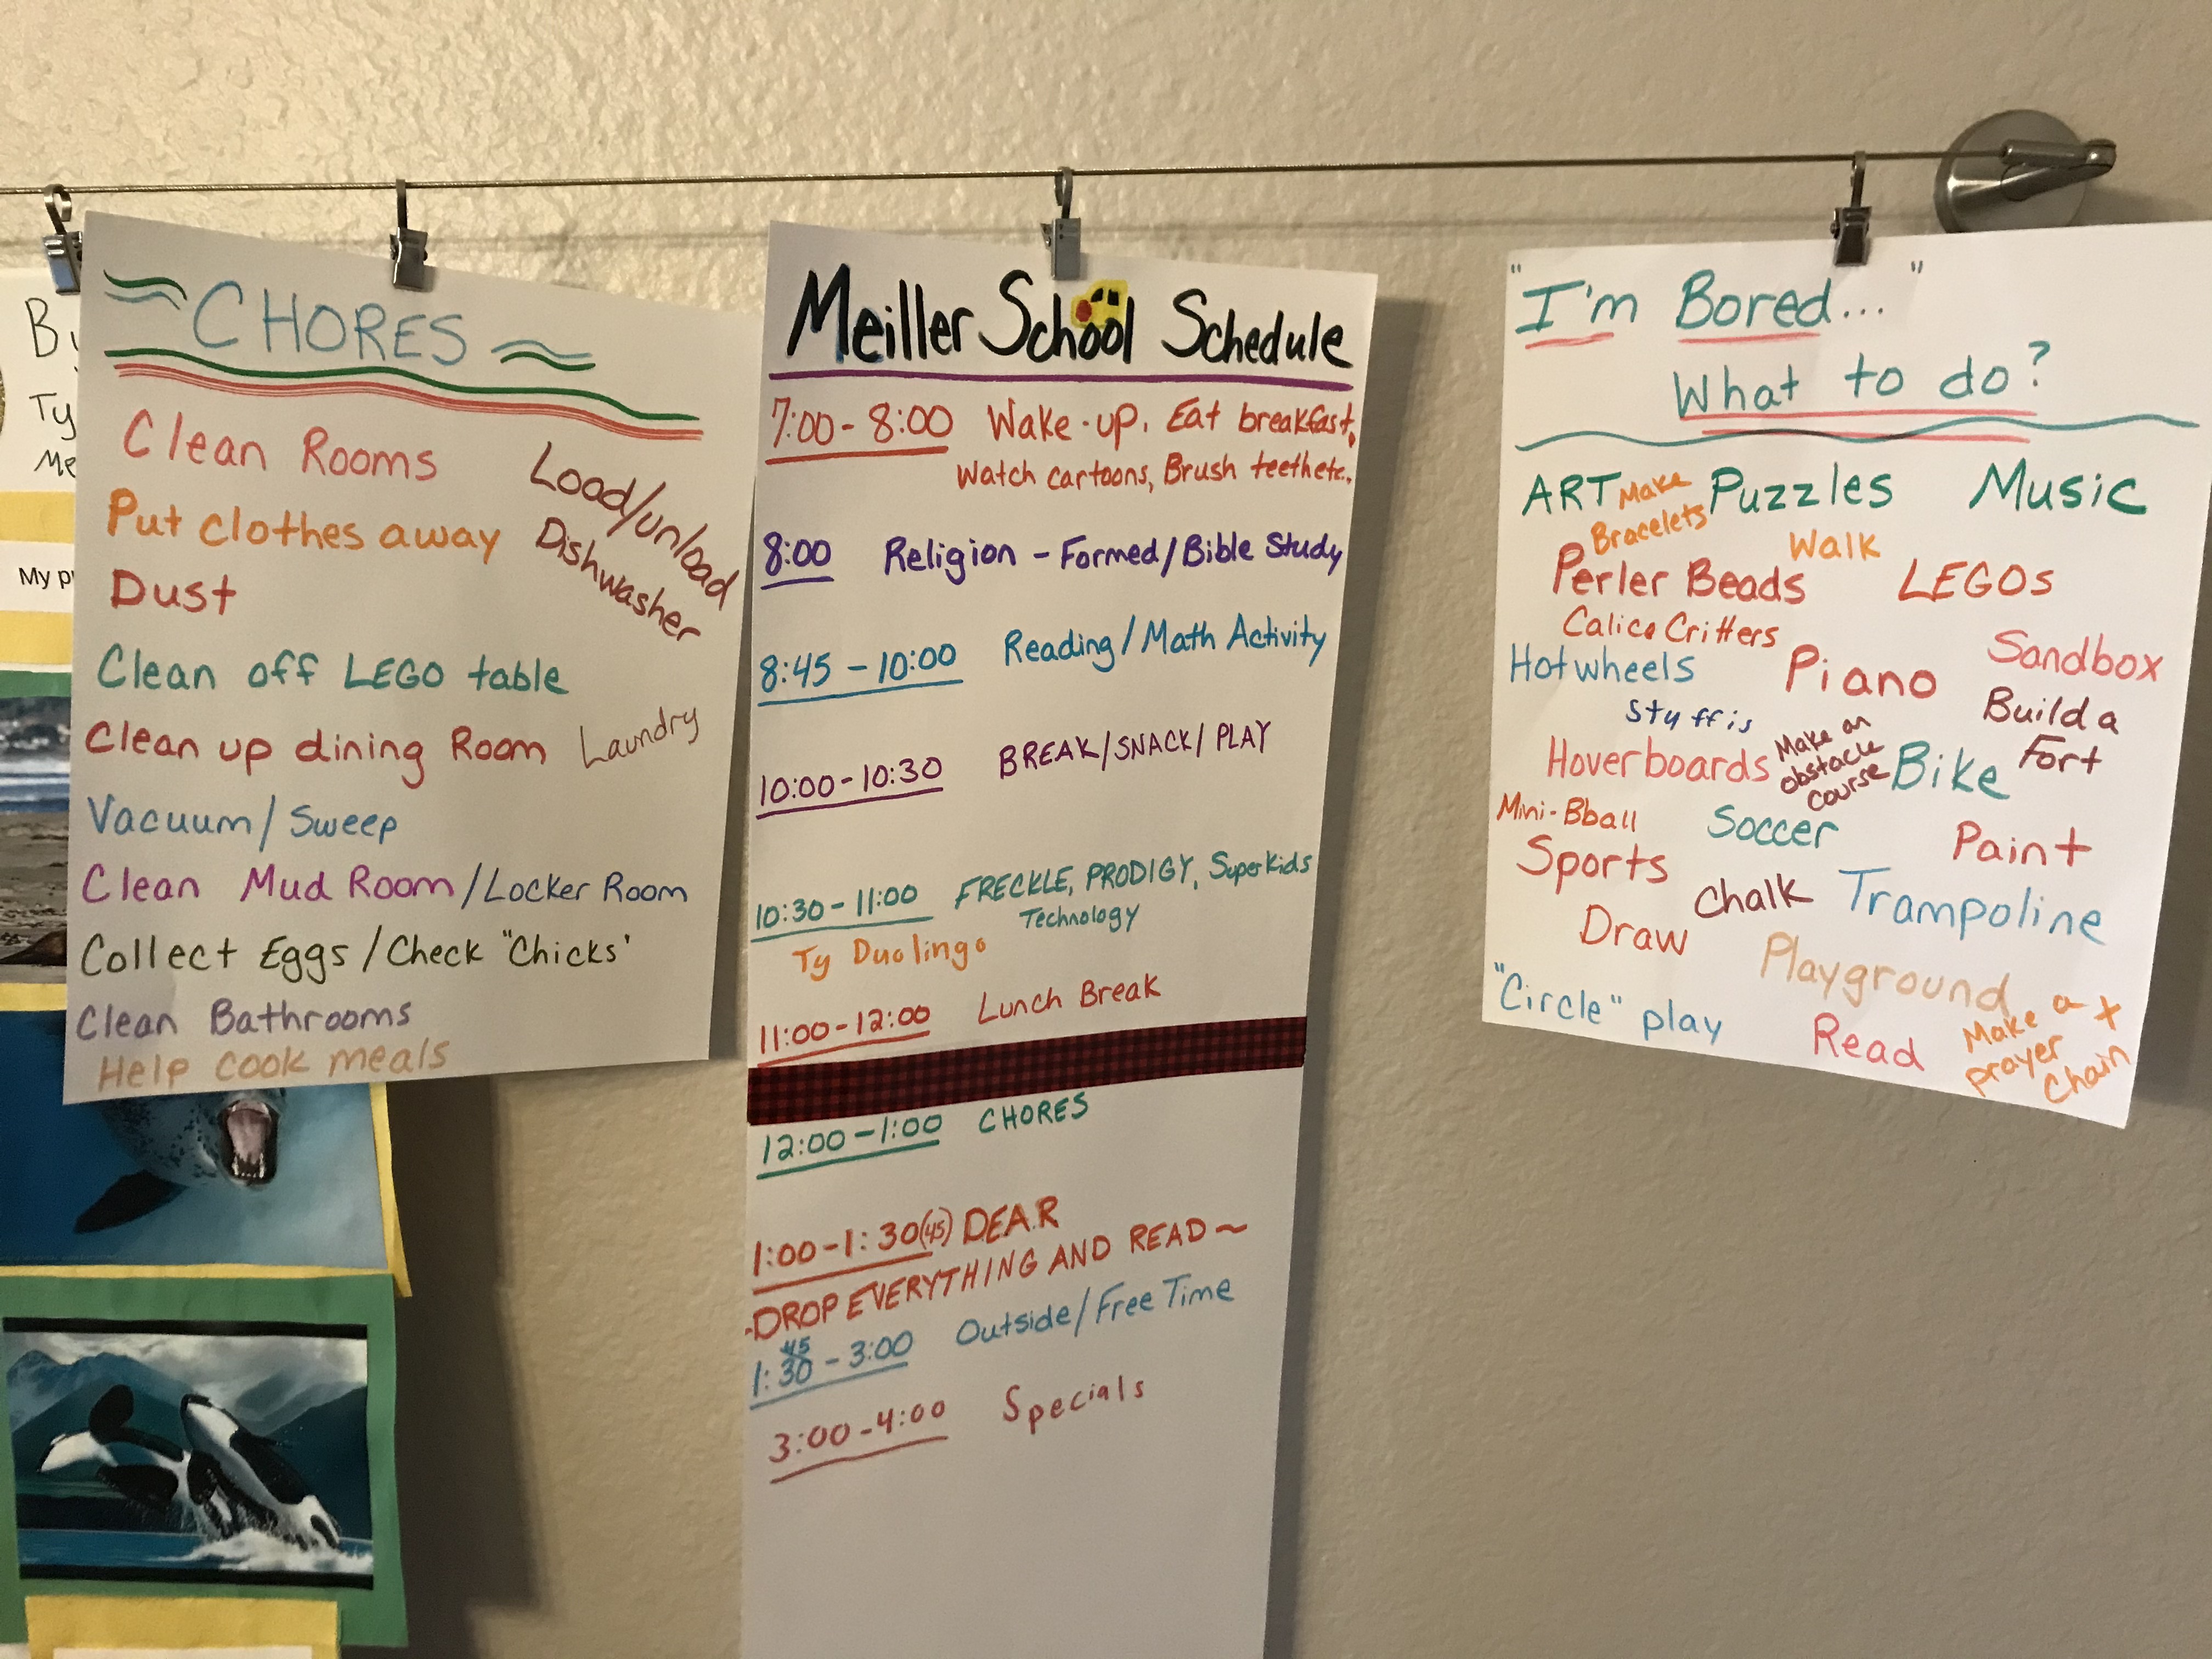 By
Ty
Me
My
CHORES
Clean Rooms
Load/unload
Dishwasher
Put clothes away
Dust
Clean off LEGO table
Clean up dining Room
Laundry
Vacuum/Sweep
Clean Mud Room/Locker Room
Collect Eggs/Check "Chicks'
Clean Bathrooms
Help cook meals
Meiller School Schedule
7:00-8:00 Wake-up, Eat breakfast,
Watch cartoons, Brush teeth etc.
8:00 Religion - Formed/Bible Study
8:45-10:00 Reading/Math Activity
10:00-10:30 BREAK/SNACK/PLAY
10:30-11:00 FRECKLE, PRODIGY, SuperKids
Technology
Ty Duolingo
11:00-12:00 Lunch Break
12:00-1:00 CHORES
1:00-1:30(45) DEAR
-DROP EVERYTHING AND READ~
45
1:30-3:00 Outside/Free Time
3:00-4:00 Specials
"I'm Bored..."
What to do?
ART Make Bracelets Puzzles Music
Walk
Perler Beads LEGOs
Calico Critters
Hotwheels Piano Sandbox
Stuffis
Build a
Fort
Hoverboards
Make an
obstacle
course
Bike
Mini-Bball
Soccer
Paint
Sports
Chalk
Trampoline
Draw
Playground
"Circle" play
Read
Make a +
prayer
Chain